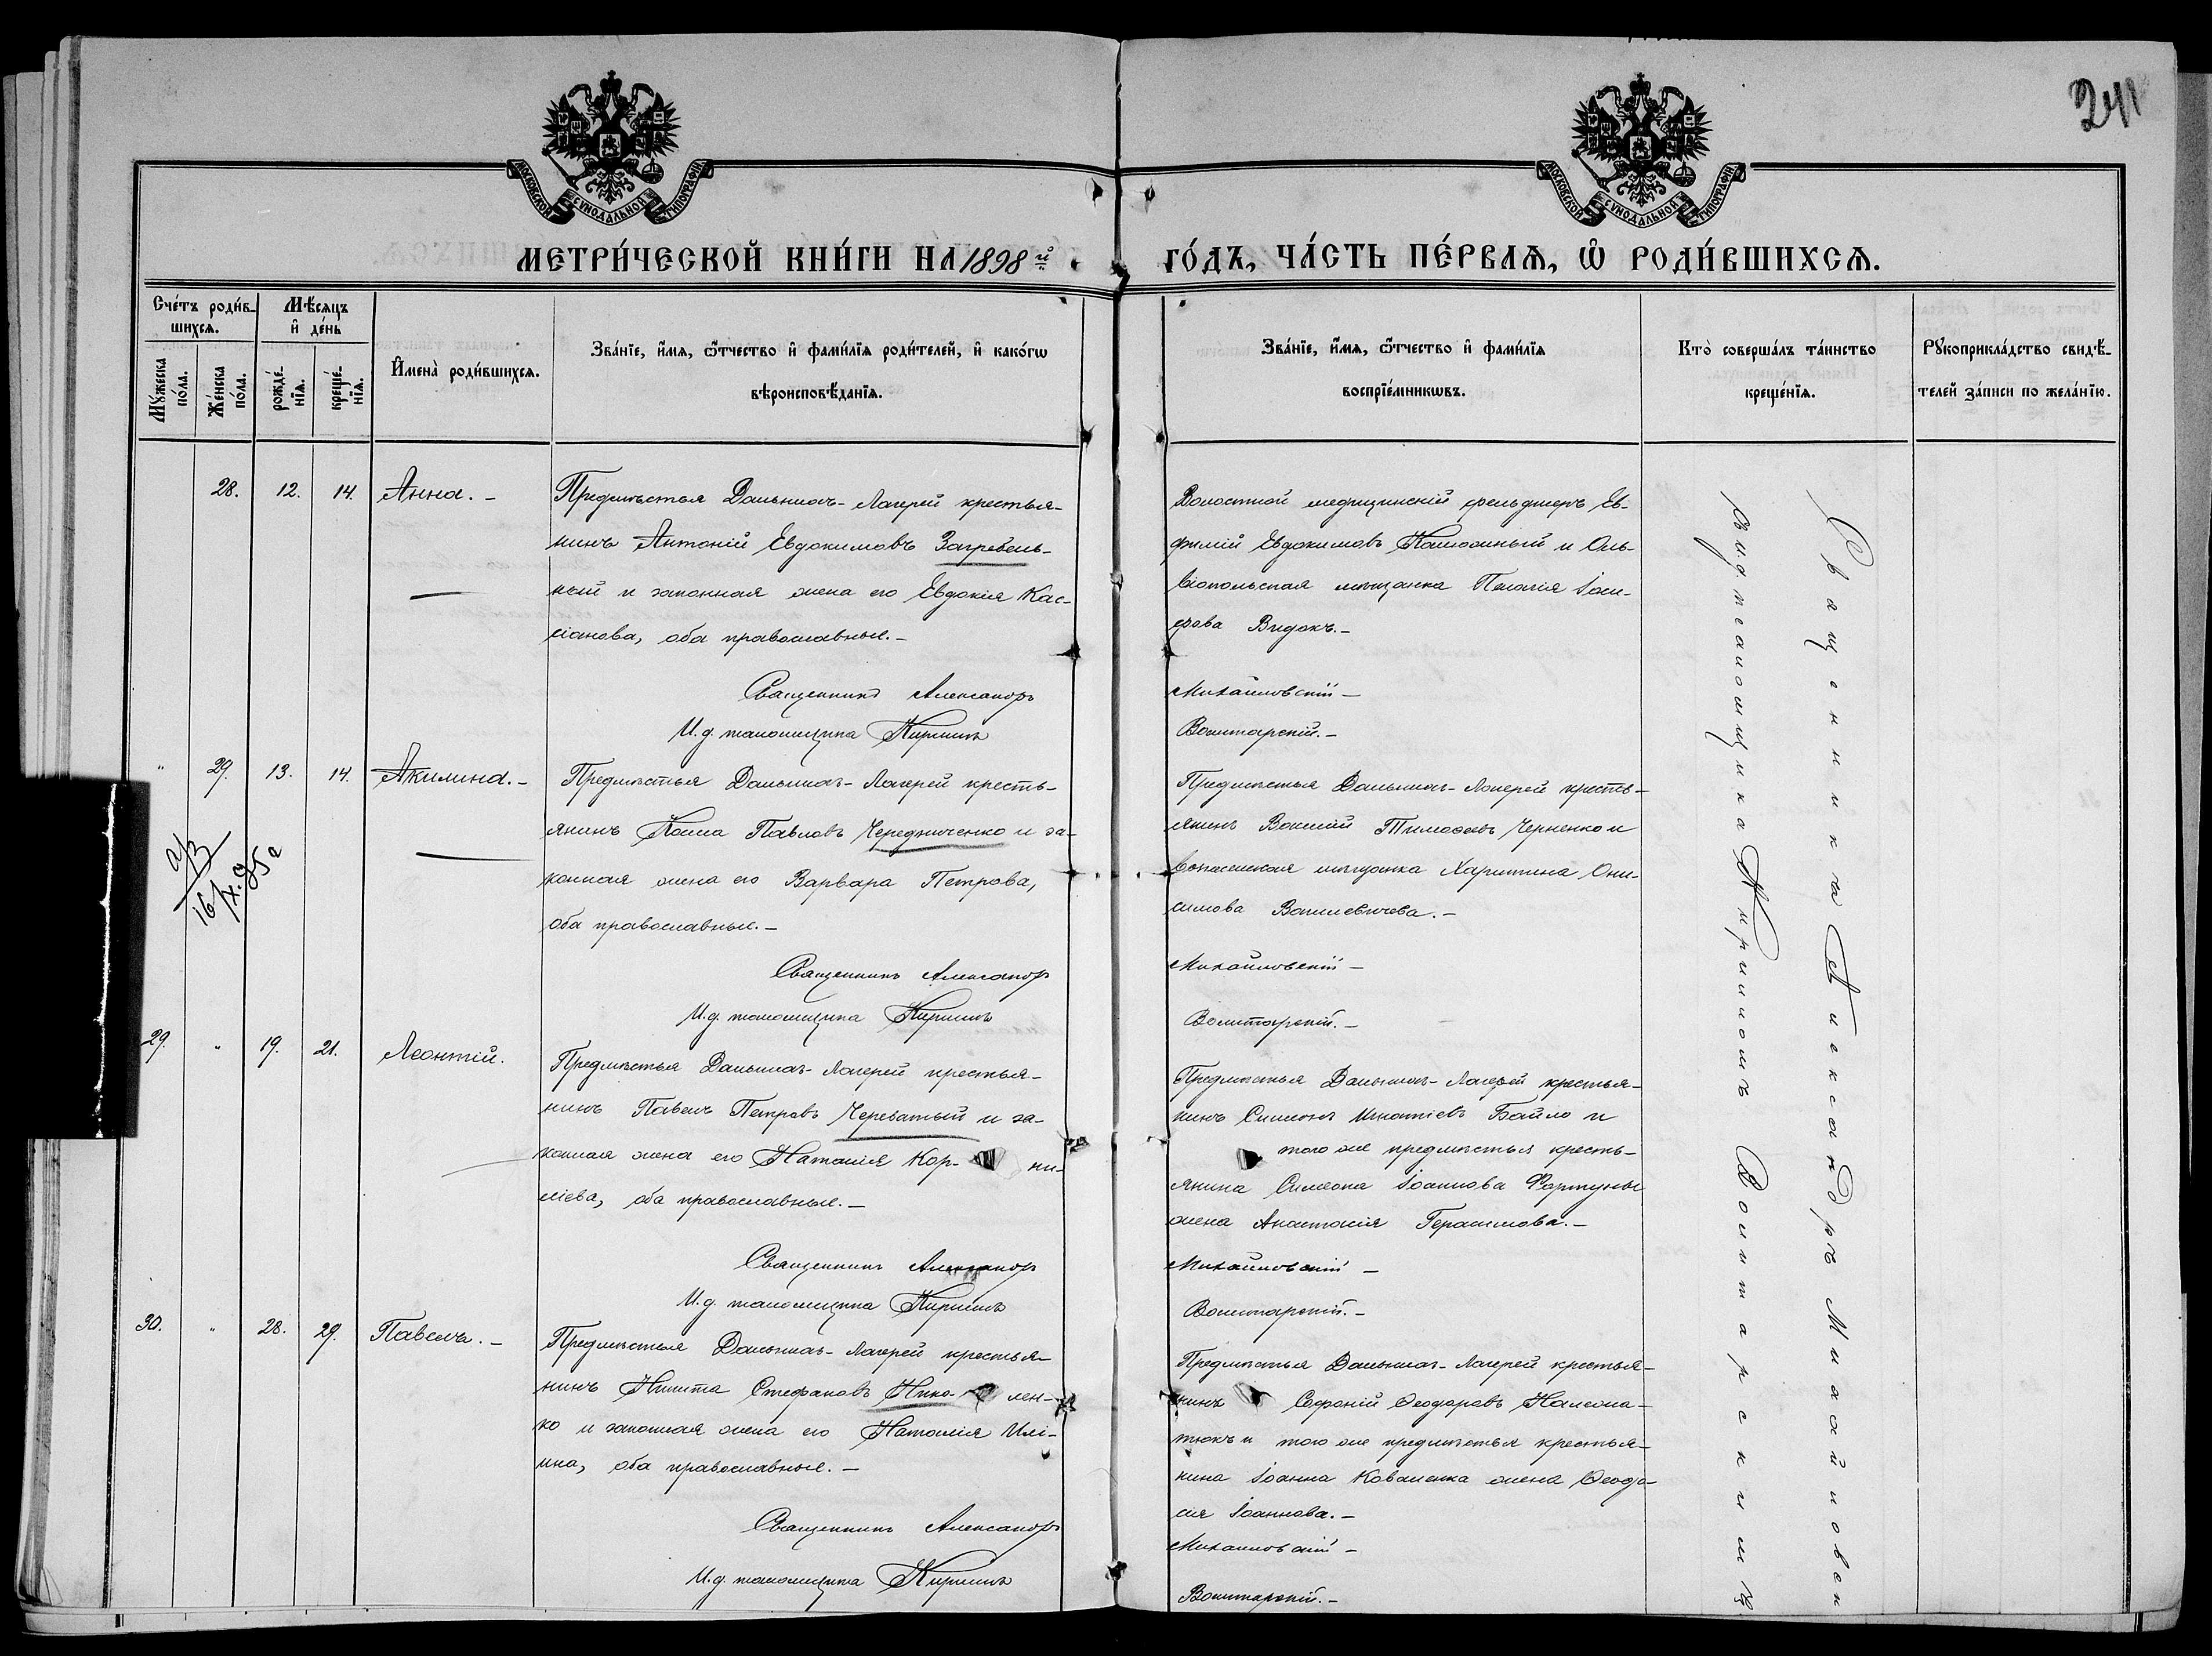 241
МОСКОВСКОЙ СУНОДАЛЬНОЙ ТИПОГРАФІИ
МОСКОВСКОЙ СУНОДАЛЬНОЙ ТИПОГРАФІИ
МЕТРИ́ЧЕСКОЙ КНИ́ГИ НА 1898 й
ГО́ДЪ, ЧА́СТЬ ПЕ́РВАЯ, Ѽ РОДИ́ВШИХСЯ.
Сче́тъ роди́в-
шихся.
Мѣ́сяцъ
и҆ де́нь
Му́жеска
по́ла.
Же́нска
по́ла.
рожде́-
нїя.
креще́-
нїя.
И҆мена̀ роди́вшихся.
Зва́нїе, и҆́мя, ѻ҆́тчество и҆ фами́лїя роди́телей, и҆ како́гѡ
вѣроисповѣ́данїя.
Зва́нїе, и҆́мя, ѻ҆́тчество и҆ фами́лїя
воспрїе́мникѡвъ.
Кто̀ соверша́лъ та́инство
креще́нїя.
Рꙋкоприкла́дство свидѣ́-
телей за́писи по жела́нїю.
28. 12. 14. Анна. -
Предмѣстья Дальнихъ-Лагерей крестья-
нинъ Антоній Евдокимовъ Загребель-
ный и законная жена его Евдокія Кас-
сіанова, оба православные. -
Священникъ Александръ
И.д. псаломщика Кириллъ
Волостной медицинскій фельдшеръ Ев-
фимій Евдокимовъ и Оль-
віопольская мѣщанка Пелагія Іоси-
фова Видокъ. -
Михайловскій -
Волитарскій. -
" 29. 13. 14. Акилина. -
Предмѣстья Дальнихъ-Лагерей кресть-
янинъ Косма Павловъ Чередниченко и за-
конная жена его Варвара Петрова,
оба православные. -
Священникъ Александръ
И.д. псаломщика Кириллъ
Предмѣстья Дальнихъ-Лагерей кресть-
янинъ Василій Тимоѳеевъ Черненко и
мѣщанка Харитина Они-
симова Василевичева. -
Михайловскій -
Волитарскій. -
29. " 19. 21. Леонтій.
Предмѣстья Дальнихъ-Лагерей крестья-
нинъ Павелъ Петровъ Череватый и за-
конная жена его Наталія Кор- ни-
ліева, оба православные. -
Священникъ Александръ
И.д. псаломщика Кириллъ
Предмѣстья Дальнихъ-Лагерей крестья-
нинъ Симеонъ Игнатіевъ Байло и
того же предмѣстья кресть-
янина Симеона Іоаннова Фортуны
жена Анастасія Герасимова. -
Михайловскій -
Волитарскій. -
30. " 28. 29. Павелъ. -
Предмѣстья Дальнихъ-Лагерей крестья-
нинъ Никита Стефановъ Нико- лен-
ко и законная жена его Наталія Илі-
ина, оба православные. -
Священникъ Александръ
И.д. псаломщика Кириллъ
Предмѣстья Дальнихъ-Лагерей крестья-
нинъ Софоній Ѳеодоровъ
и того же предмѣстья крестья-
нина Іоанна Коваленка жена Ѳеодо-
сія Іоаннова. -
Михайловскій -
Волитарскій. -
Священникъ Александръ Михайловск
съ и.д. псаломщика Кирилломъ Волитарскимъ